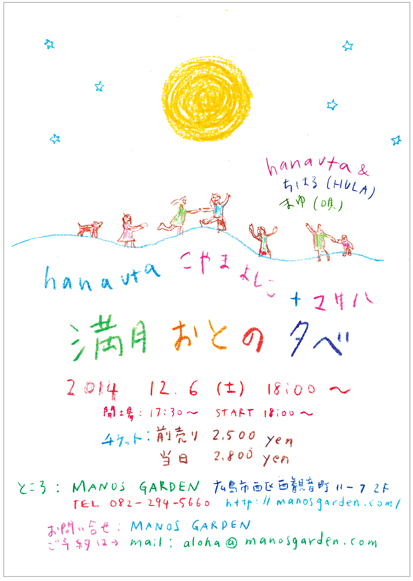 hanauta &
ちはる (HULA)
まゆ (唄)
hanauta こやまよしこ + マサハ
満月 おとの 夕べ
2014 12.6 (土) 18:00 ~
開場: 17:30~ START 18:00~
チケット: 前売り 2,500 yen
当日 2,800 yen
ところ: MANOS GARDEN 広島市西区西観音町 11-7 2F
TEL 082-294-5660 http://manosgarden.com/
お問い合せ: MANOS GARDEN
ご予約は→ mail: aloha@manosgarden.com